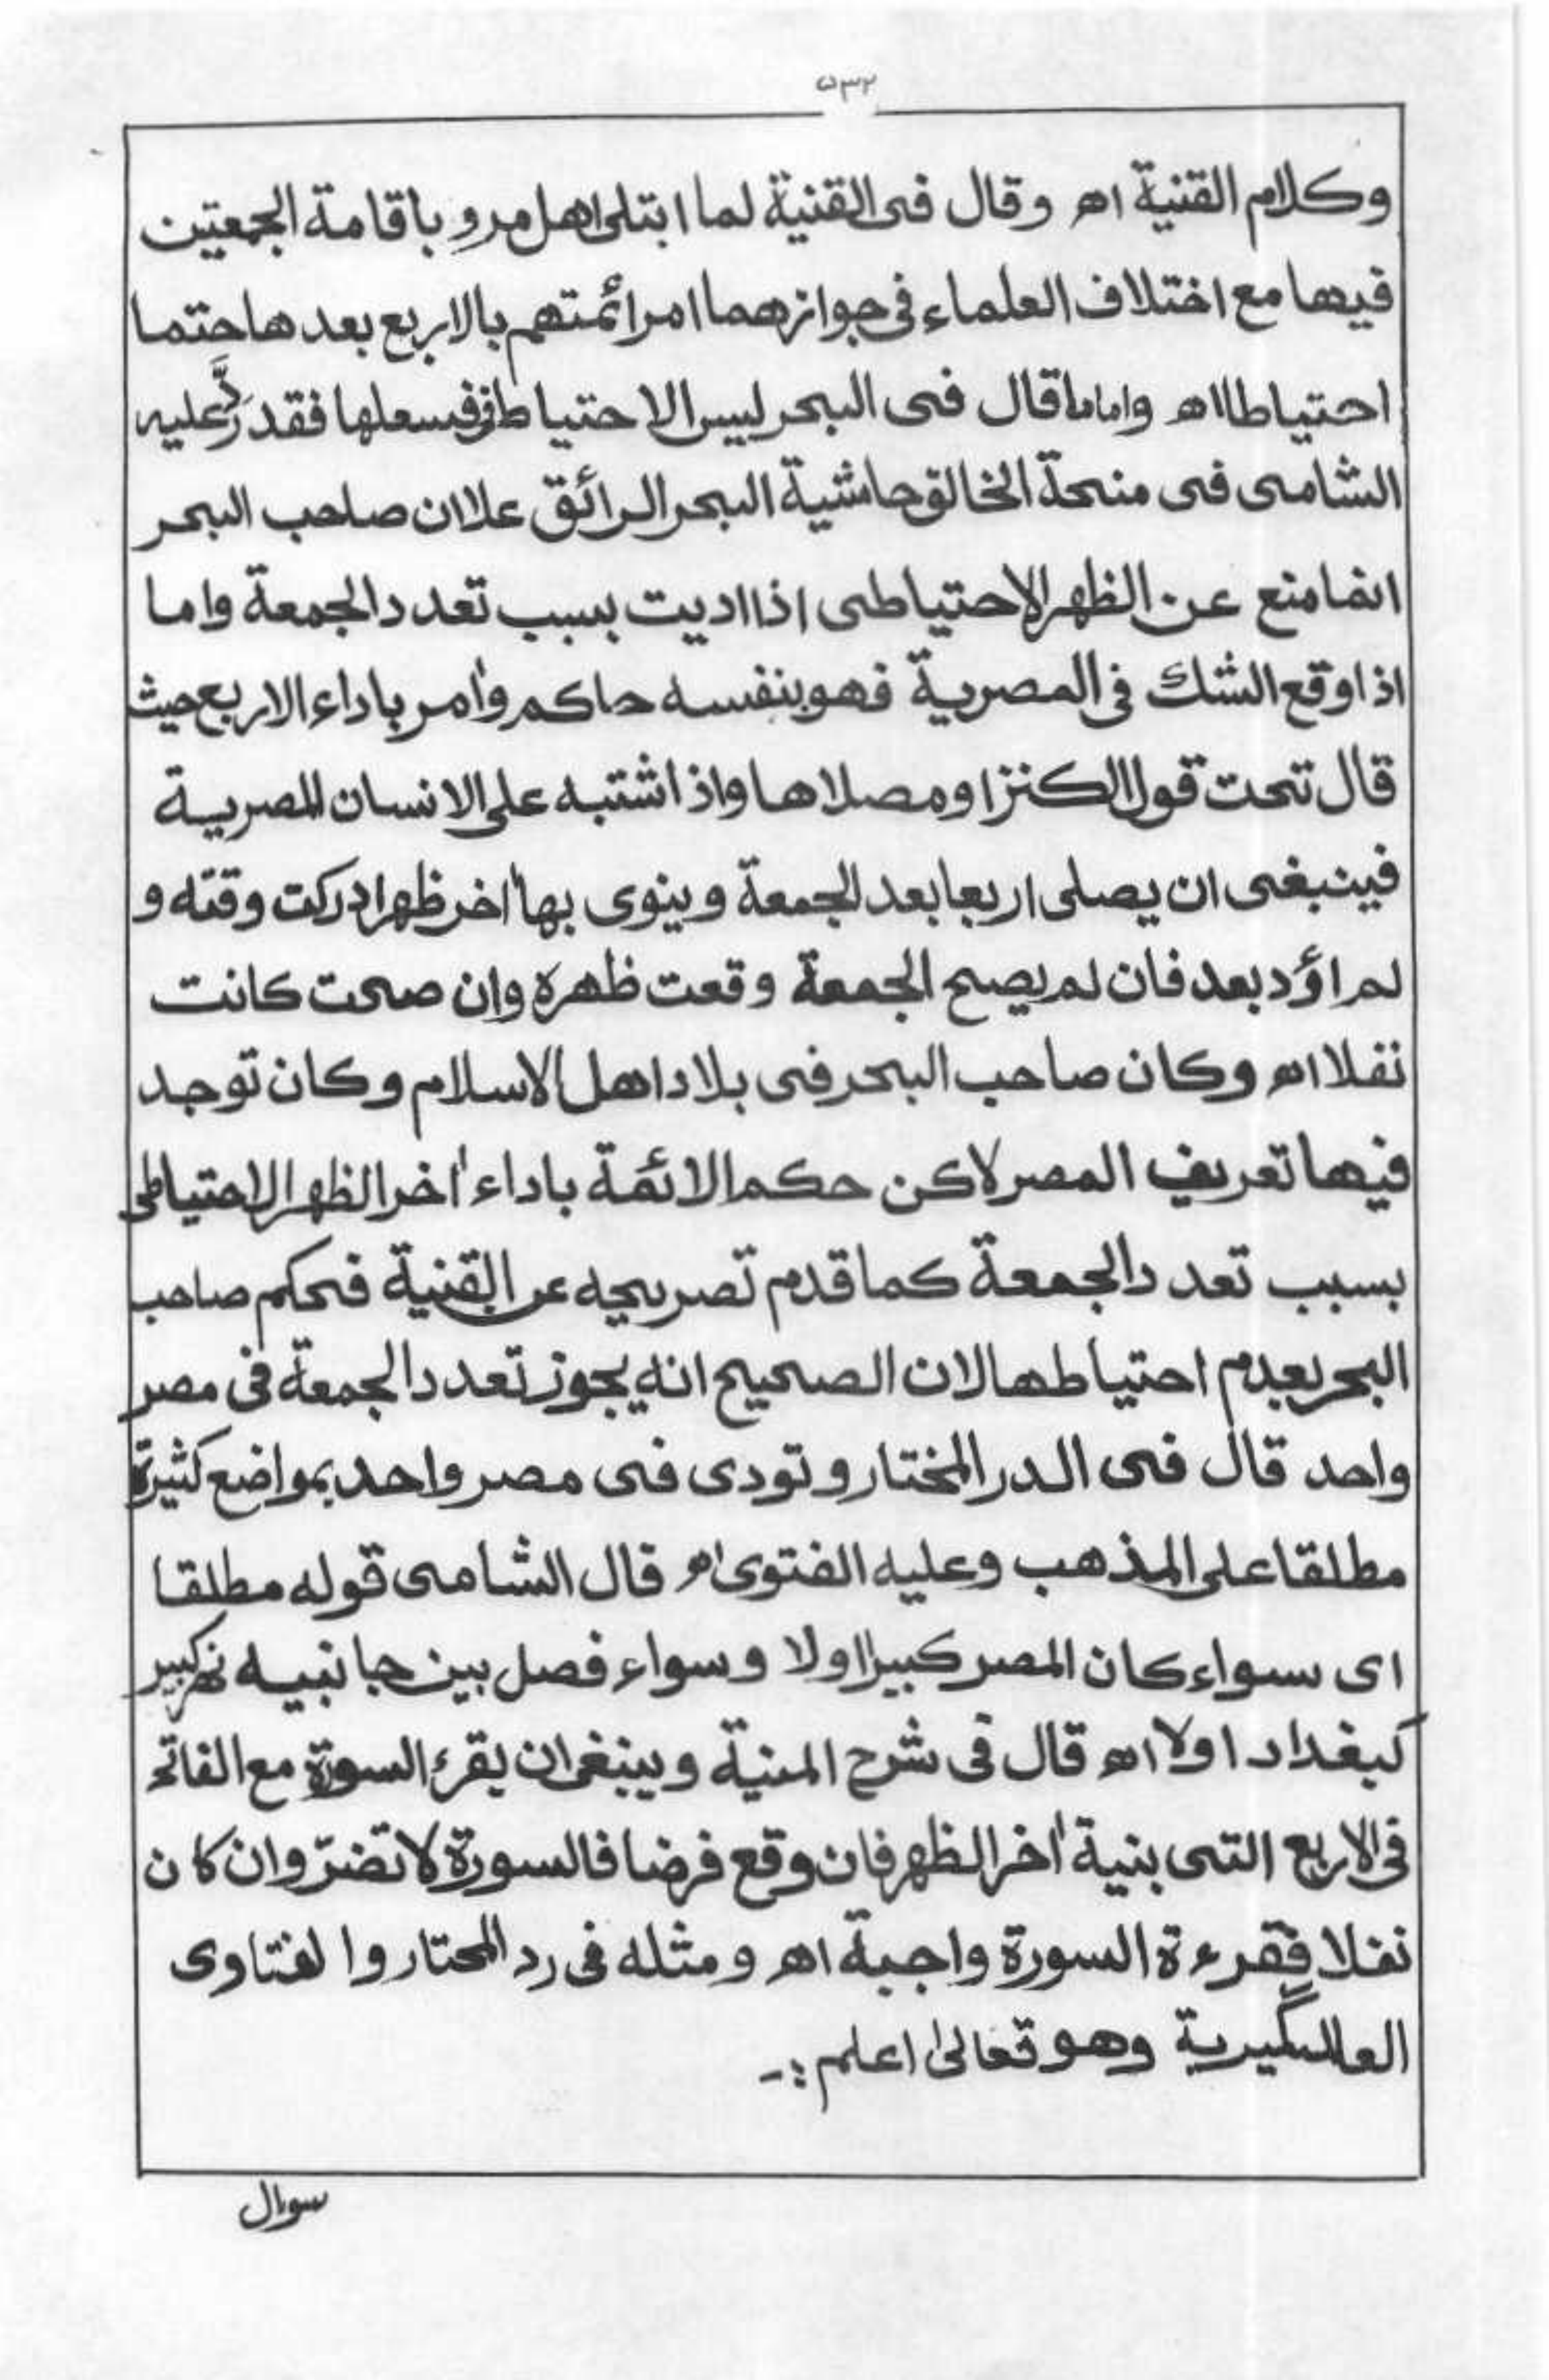 ٥٣٢
وكلام القنية اه وقال فى القنية لما ابتلى اهل مرو باقامة الجمعتين
فيها مع اختلاف العلماء فى جوازهما امر ائمتهم بالاربع بعدها حتما
احتياطا اه واما ما قال فى البحر ليس الاحتياط فى فعلها فقد ردَّ عليه
الشامى فى منحة الخالق حاشية البحر الرائق علا ان صاحب البحر
انما منع عن الظهر الاحتياطى اذا اديت بسبب تعدد الجمعة واما
اذا وقع الشك فى المصرية فهو بنفسه حاكم واٰمر باداء الاربع حيث
قال تحت قول الكنز او مصلاها واذا اشتبه على الانسان المصرية
فينبغى ان يصلى اربعا بعد الجمعة وينوى بها اٰخر ظهر ادركت وقته و
لم اؤد بعد فان لم يصح الجمعة وقعت ظهره وان صحت كانت
نفلا اه وكان صاحب البحر فى بلاد اهل الاسلام وكان توجد
فيها تعريف المصر لاكن حكم الائمة باداء اٰخر الظهر الاحتياطى
بسبب تعدد الجمعة كما قدم تصريحه عن القنية فحكم صاحب
البحر بعدم احتياطها لان الصحيح انه يجوز تعدد الجمعة فى مصر
واحد قال فى الدر المختار وتودى فى مصر واحد بمواضع كثيرة
مطلقا على المذهب وعليه الفتوى اه قال الشامى قوله مطلقا
اى سواء كان المصر كبيرا اولا وسواء فصل بين جانبيه نهر كبير
كبغداد اولا اه قال فى شرح المنية وينبغى ان يقرء السورة مع الفاتحة
فى الاربع التى بنية اٰخر الظهر فان وقع فرضا فالسورة لا تضرّ وان كان
نفلا فقرءة السورة واجبة اه ومثله فى رد المحتار والفتاوى
العالمگيرية وهو تعالىٰ اعلم :-
سوال